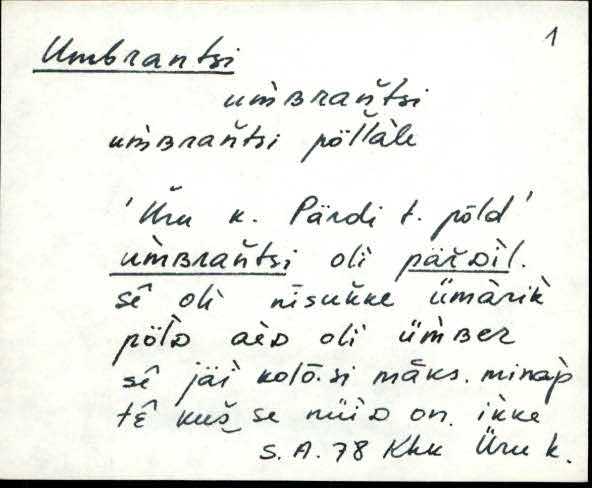 1
Umbrantsi
um̀ʙrant̆si
um̀ʙrant̆si pöl̆l̀àle
'Üru k. Pärdi t. põld'
um̀ʙrant̆si oli pär̆ᴅìl.
sê olì nīsuk̆ke ümàrik̀
põlᴅ aèᴅ oli üm̀ʙer
sê jäi kolō.si māks. minàp̀
tê kuš se nüìᴅ on. ìkke
S.A. 78 Khk Üru k.